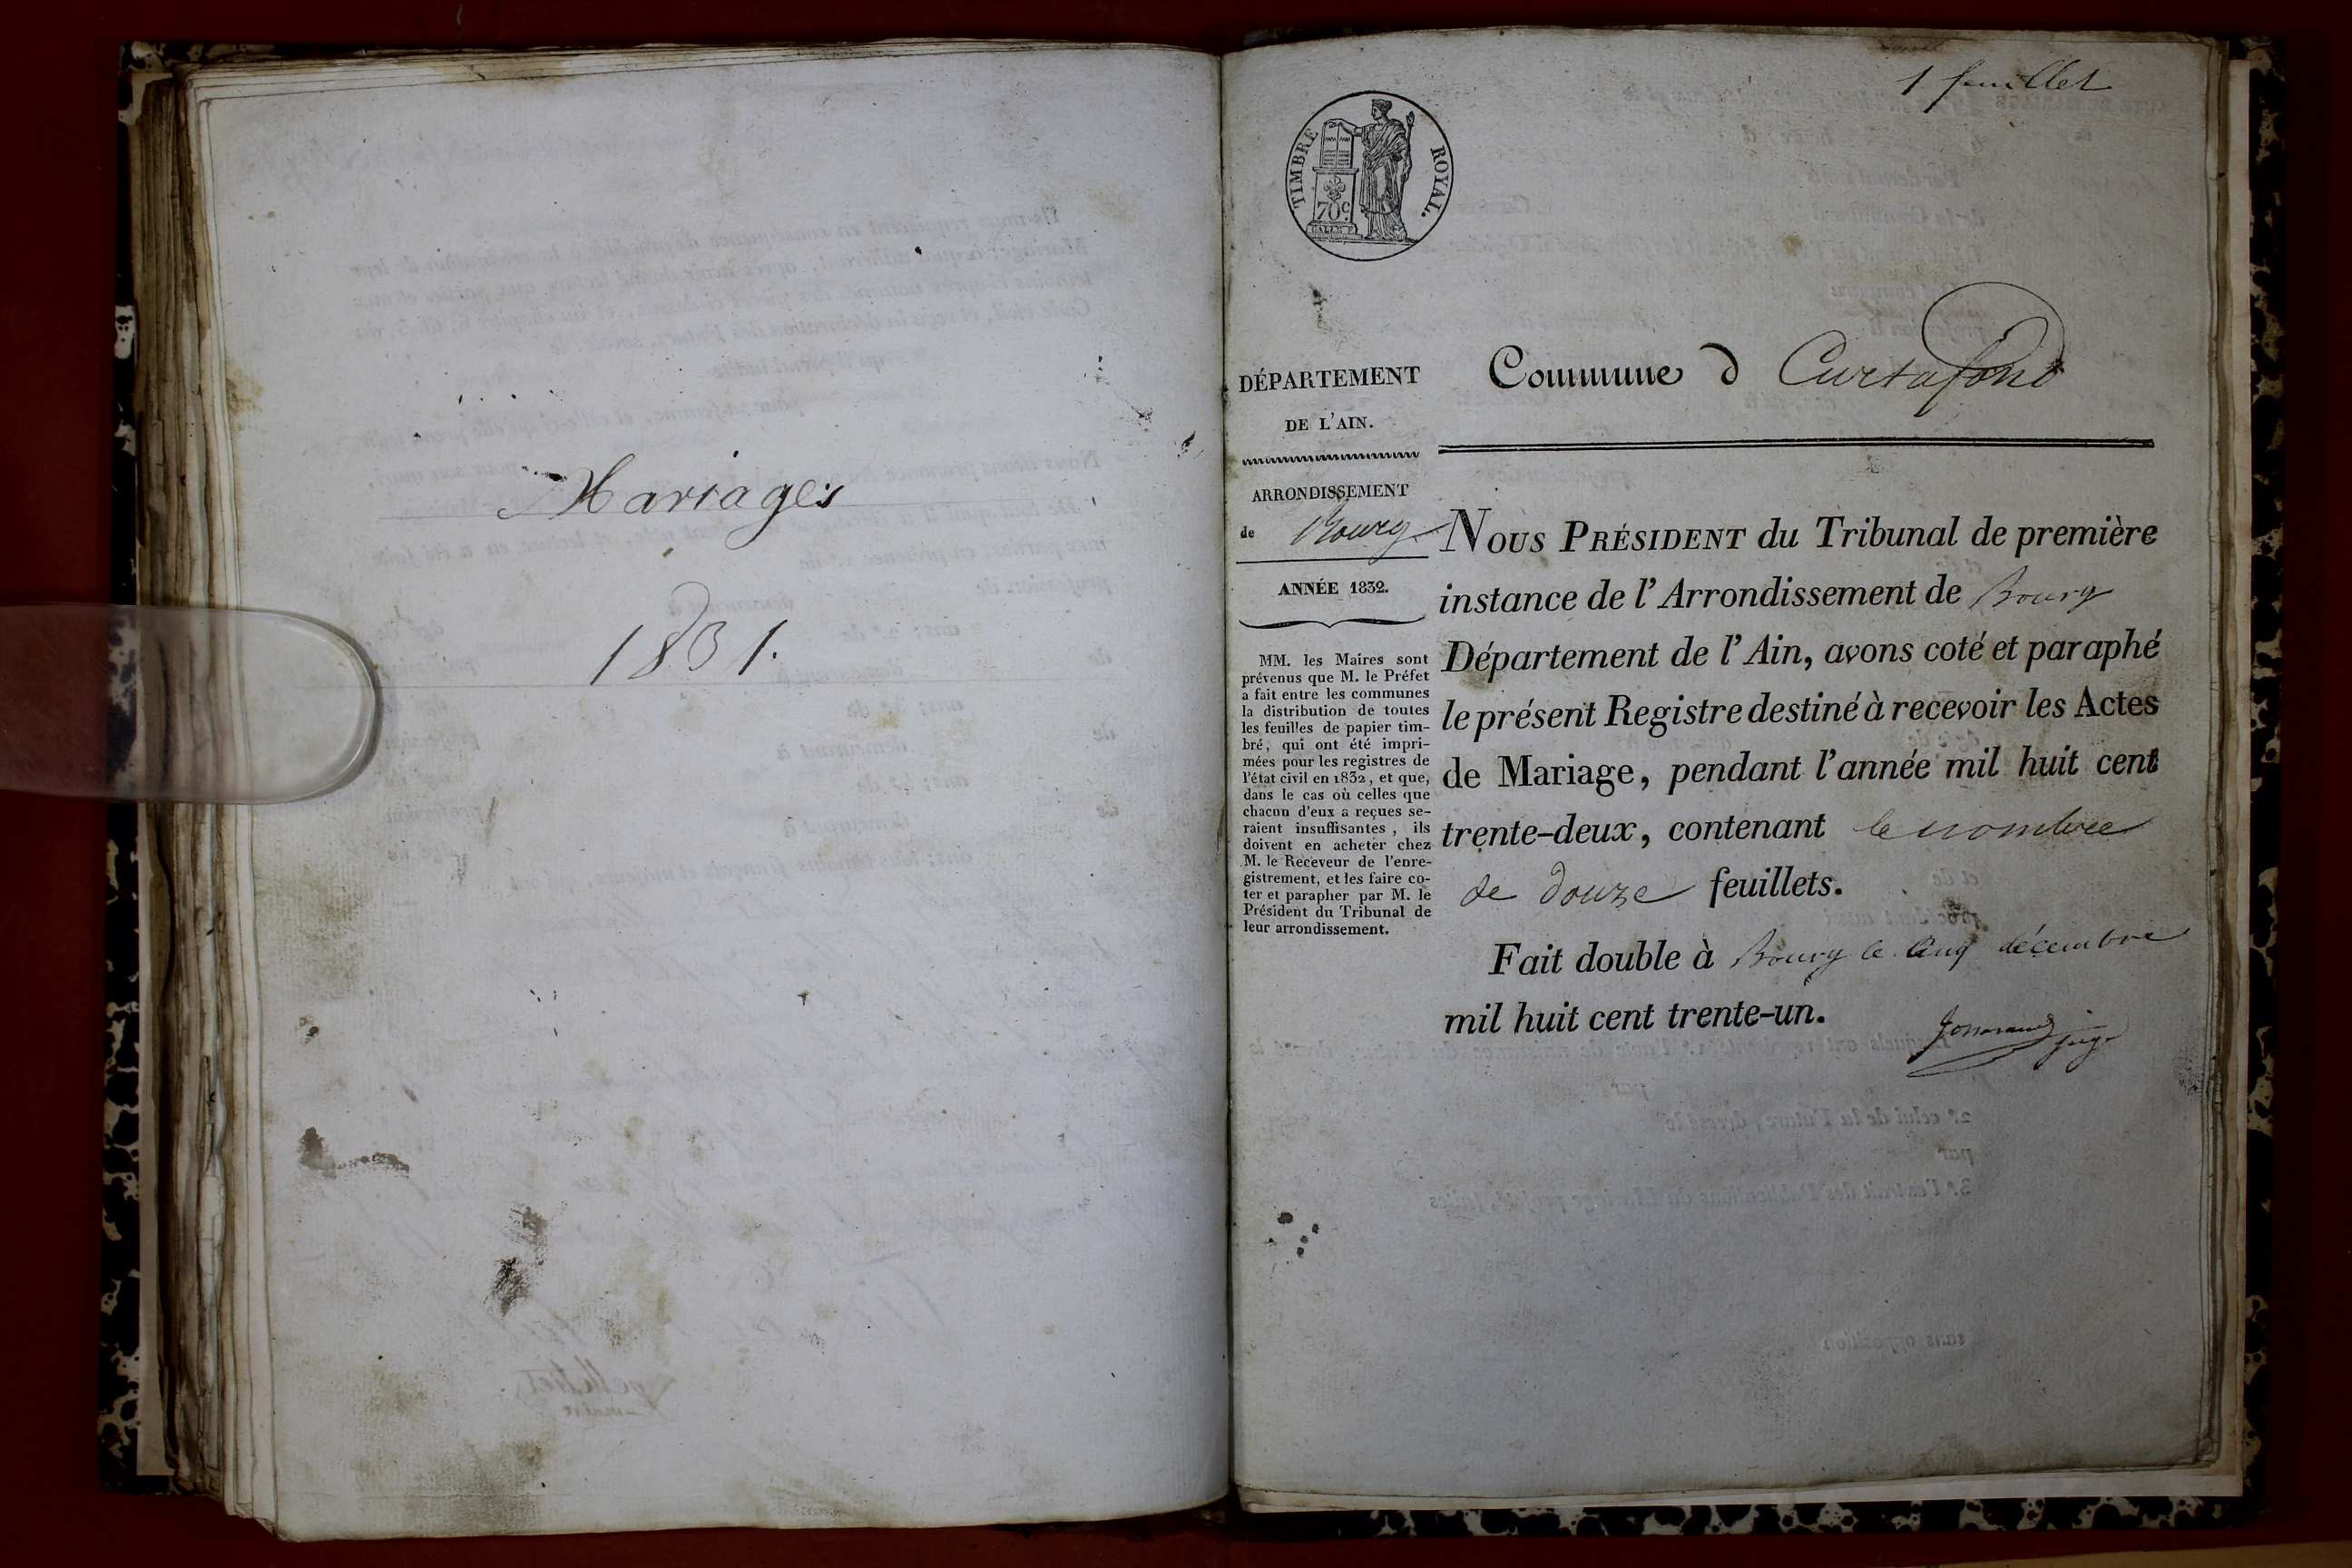 Mariages
1831.
1 feuillet
TIMBRE ROYAL.
70 C.
DÉPARTEMENT
DE L'AIN.
ARRONDISSEMENT
de Bourg
ANNÉE 1832.
MM. les Maires sont
prévenus que M. le Préfet
a fait entre les communes
la distribution de toutes
les feuilles de papier tim-
bré, qui ont été impri-
mées pour les registres de
l'état civil en 1832, et que,
dans le cas où celles que
chacun d'eux a reçues se-
raient insuffisantes, ils
doivent en acheter chez
M. le Receveur de l'enre-
gistrement, et les faire co-
ter et parapher par M. le
Président du Tribunal de
leur arrondissement.
Commune d Curtafond
NOUS PRÉSIDENT du Tribunal de première
instance de l'Arrondissement de Bourg
Département de l'Ain, avons coté et paraphé
le présent Registre destiné à recevoir les Actes
de Mariage, pendant l'année mil huit cent
trente-deux, contenant le nombre
de douze feuillets.
Fait double à Bourg le cinq décembre
mil huit cent trente-un.
juge